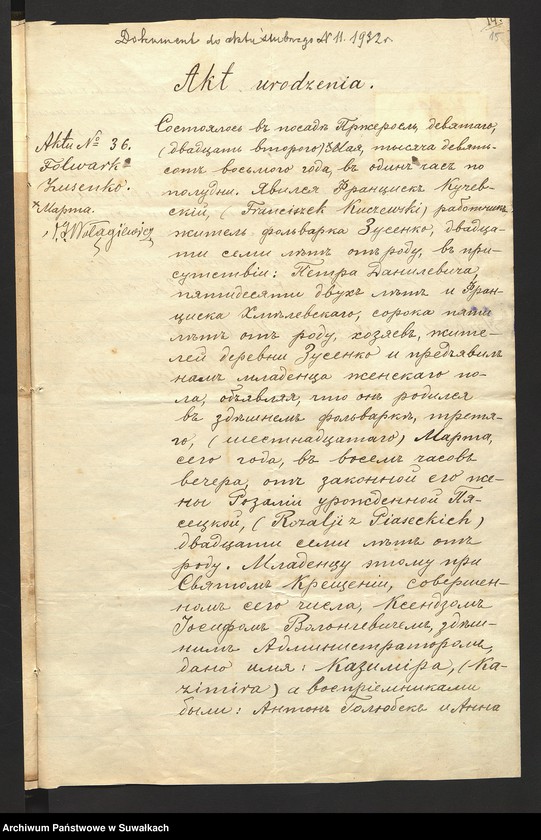 Dokument do aktu ślubnego N 11. 1932 r
14.
15
Akt urodzenia.
Aktu № 36.
Folwark
Zusenko.
Марта.
Состоялось въ посадѣ Пржеросль, девятаго,
(двадцать втораго) Мая, тысяча девять-
сотъ восьмого года, въ одинъ часъ по
полудни. Явился Францискъ Кучев-
скій, (Franciszek Kuczewski) работникъ,
житель фольварка Зусенко, двадца-
ти семи лѣтъ отъ роду, въ при-
сутствіи: Петра Данилевича,
пятидесяти двухъ лѣтъ и Фран-
циска Хмѣлевскаго, сорока пяти
лѣтъ отъ роду, хозяевъ, жите-
лей деревни Зусенко и предъявилъ
намъ младенца женскаго по-
ла, объявляя, что онъ родился
въ здѣшнемъ фольваркѣ, третья-
го, (шестнадцатаго) Марта,
сего года, въ восемь часовъ
вечера, отъ законной его же-
ны Розаліи урожденной Пя-
сецкой, (Rozalji z Piaseckich)
двадцати семи лѣтъ отъ
роду. Младенцу этому при
Святомъ Крещеніи, совершен-
номъ сего числа, Ксендзомъ
Іосифомъ Вологкевичемъ, здѣш-
нимъ Администраторомъ,
дано имя: Казиміра, (Ka-
zimira) а воспріемниками
были: Антонъ Голюбекъ и Анна
Archiwum Państwowe w Suwałkach